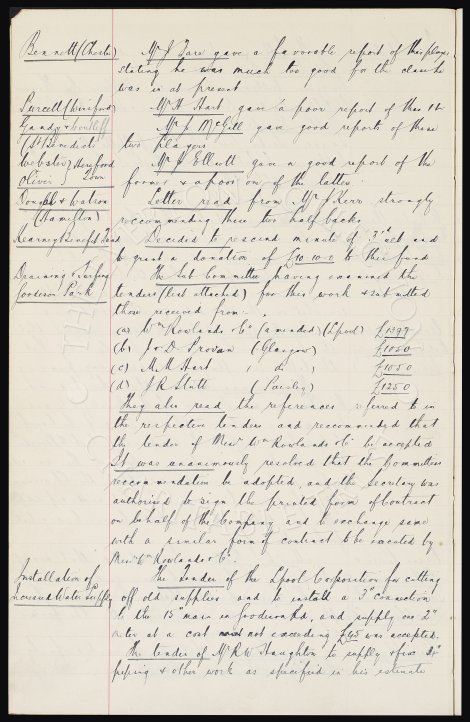 Bennett (Chester)
Mr J Fare gave a favorable report of this player
stating he was much too good for the class he
was in at present
Purcell (Winsford)
Mr H Hart gave a poor report of this
Gandy &
Mr J McGill gave good reports of these
(St Benedicts)
two players
Webster Hereford
Oliver Town
Mr J Elliott gave a good report of the
former & a poor one of the latter
& Watson
(Hamilton)
Letter read from Mr J Kerr strongly
reccommending these two half backs
Kearney Benefit Fund
Decided to rescind minute of 3rd and
to grant a donation of £10-10-0 to this fund
Draining & Turfing
Goodison Park
The Sub Committee having examined the
tenders (list attached) for this work & submitted
those received from:-
(a) Wm Rowlands & Co (amended) (Lpool) £1399
(b) J & D Provan (Glasgow) £1050
(c) M. M Hart ( do ) £1050
(d) J R Stutt (Paisley) £1250
They also read the references referred to in
the respective tenders and reccommended that
the tender of Messrs Wm Rowlands & Co be accepted
It was unanimously resolved that the Committees
reccommendation be adopted, and the Secretary was
authorised to sign the printed form of Contract
on behalf of the Company and to exchange same
with a similar form of contract to be executed by
Messrs Wm Rowlands & Co.
Installation of
Increased Water Supply
The Tender of the Lpool Corporation for cutting
off old supplies and to install a 3" connection
to the 15" main in Goodison Rd, and supply one 2"
meter at a cost not exceeding £45 was accepted.
The tender of Mr R W Houghton to supply & fix
piping & other work as specified in his estimate